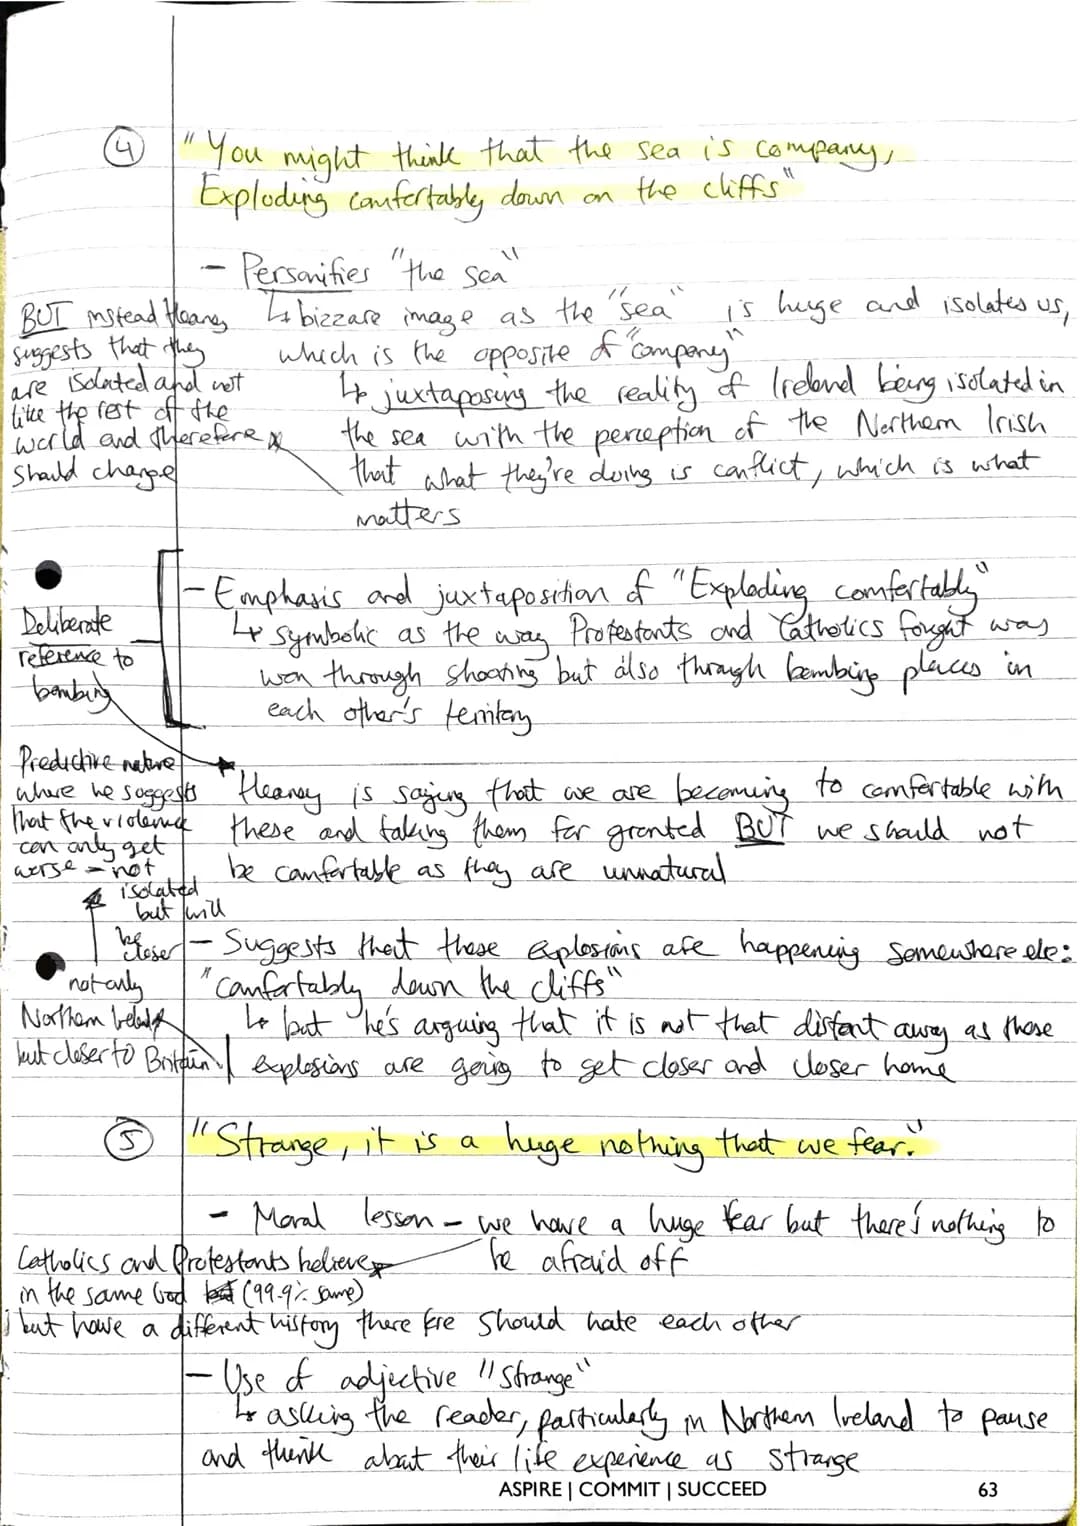 ④ "You might think that the sea is company,
Exploding comfortably down on the cliffs"
- Personifies "the sea"
↳ bizzare image as the "sea" is huge and isolates us,
which is the opposite of "company"
↳ juxtaposing the reality of Ireland being isolated in
the sea with the perception of the Northern Irish
that what they're doing is conflict, which is what
matters
BUT instead Heaney
suggests that they
are isolated and not
like the rest of the
world and therefore
should change
- Emphasis and juxtaposition of "Exploding comfortably"
↳ symbolic as the way Protestants and Catholics fought was
won through shooting but also through bombing places in
each other's territory
Deliberate
reference to
bombing
Heaney is saying that we are becoming to comfortable with
these and taking them for granted BUT we should not
be comfortable as they are unnatural
Predictive nature
where he suggests
that the violence
can only get
worse - not
isolated
but will
be
closer
- Suggests that these explosions are happening somewhere else:
"comfortably down the cliffs"
↳ but he's arguing that it is not that distant away as those
explosions are going to get closer and closer home
not only
Northern Ireland
but closer to Britain
⑤ "Strange, it is a huge nothing that we fear."
- Moral lesson - we have a huge fear but there's nothing to
be afraid off
Catholics and Protestants believe
in the same God (99.9% same)
but have a different history therefore should hate each other
- Use of adjective "Strange"
↳ asking the reader, particularly in Northern Ireland to pause
and think about their life experience as strange
ASPIRE | COMMIT | SUCCEED
63